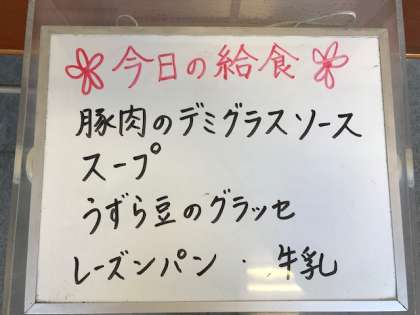 今日の給食
豚肉のデミグラスソース
スープ
うずら豆のグラッセ
レーズンパン ・ 牛乳